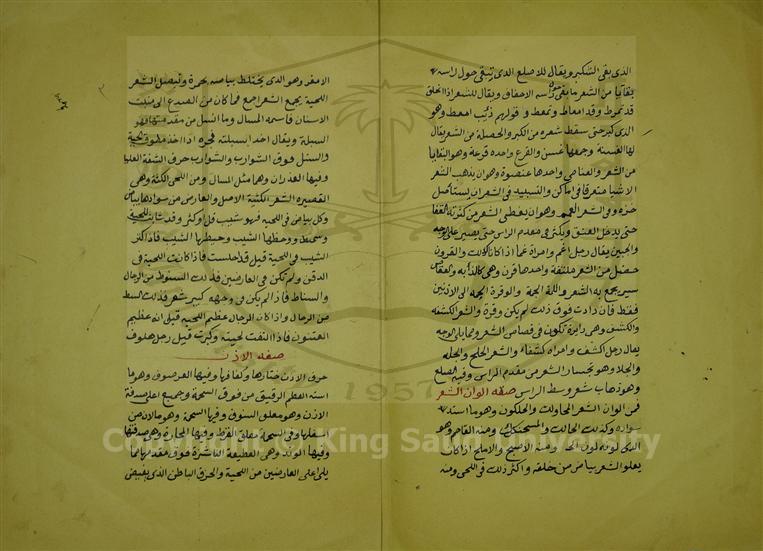 الذى بقى الشكير ويقال للاصلع الذى تبقى حول راسه
بقايا من الشعر ما بقى راسه الاحفاف ويقال للشعر اذا انحلق
قد تموط وقد امعاط وتمعط و قولهم ذئب امعط وهو
الذى كبر حتى سقط شعره من الكبر والخصلة من الشعر يقال
لها الغسنة وجمعها غسن والقزع واحده قزعة وهو البقايا
من الشعر والعناصى واحدها عنصوة وهو ان يذهب الشعر
الا شيا متفرقا فى اماكن والتسبيد فى الشعر ان يستاصل
جزه وفى الشعر الغمم وهو ان يغطى الشعر من كثرته القفا
حتى يدخل العنق ويكثر فى مقدم الراس حتى يصير على الوجه
والجبين يقال رجل اغم وامراة غما اذا كانا كذلك والقرون
خصل من الشعر ملتفة واحدها قرن وهى كالذآبه والعقص
سير يجمع به الشعر واللمة الجمة والوفرة الجمة الى الاذنين
فقط فان زادت فوق ذلك لم يكن وفرة والشعر الكشفة
والكشف وهى دايرة تكون فى قصاص الشعر مما يلى الوجه
يقال رجل اكشف وامراه كشفاء والشعر الجلح والجله
والجلا وهو انحسار الشعر من مقدم الراس وفيه الصلع
وهو ذهاب شعر وسط الراس صفة الوان الشعر
فمن الوان الشعر الحلوك وهو ما اشتد
سواده وكذلك الحالك والمسحنكك ومنه الفاحم وهو
الذى لونه لون ومنه الاصبح والاملح اذا كان
يعلو الشعر بياض من خلقة واكثر ذلك فى اللحى ومنه
الامغر وهو الذى يختلط بياضه بحمرة ويتصل الشعر
اللحية يجمع الشعر اجمع فما كان من الصدغ الى منبت
الاسنان فاسمه المسال وما انسبل من مقدمتها فهو
السبلة ويقال اخذ بسبلته فجره اذا اخذ بطرف لحيته
والسبل فوق الشوارب والشوارب حرف الشفة العليا
وفيها العذران وهما مثل المسال ومن اللحى الكثة وهى
القصيره الشعر الكثيرة الاصل والعارض من سوادها بياض
وكل بياض فى اللحية فهو شيب قل او كثر وقد شابت اللحية
وشمط ووخطها الشيب وخيطها الشيب فاذا كثر
الشيب فى اللحية قيل قد اخلست فاذا كانت اللحية فى
الذقن ولم تكن فى العارضين فذلك السنوط من الرجال
والسناط فاذا لم يكن فى وجهه كبير شعر فذلك الثط
من الرجال واذا كان الرجل عظيم اللحيه قيل انه عظيم
العثنون فاذا التفت لحيته وكبرت قيل رجل هلوف
صفه الاذن
حرف الاذن حتارها وكفافها وفيها الغرضوف وهو ما
اشبه العظم الرقيق من فوق الشحمة وجميع اعلى صدفة
الاذن وهو معلق الشنوف وفيها الشحمة وهو ما لان من
اسفلها وفى الشحمة معلق القرط وفيها المحارة وهى صدفتها
وفيها الوتد وهى القطيعة الناشزة فوق مقدمها مما
يلى اعلى العارضين من اللحية والخرق الباطن الذى يفيض
Copyright © King Saud University
1957